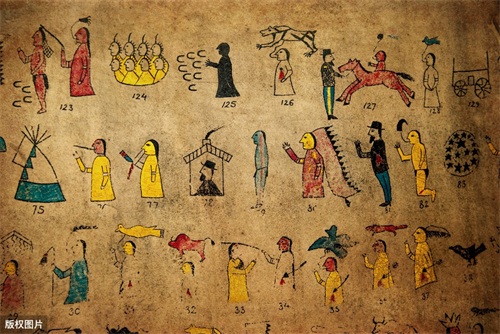 123 124 125 126 127 128 129
75 77 81 82 83
30 31 32 33 34 35 37
版权图片